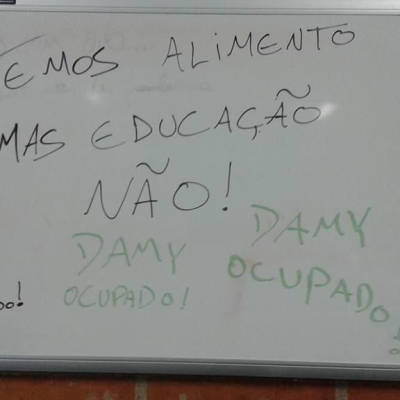 TEMOS ALIMENTO
MAS EDUCAÇÃO
NÃO!
DAMY
OCUPADO!
DAMY
OCUPADO!